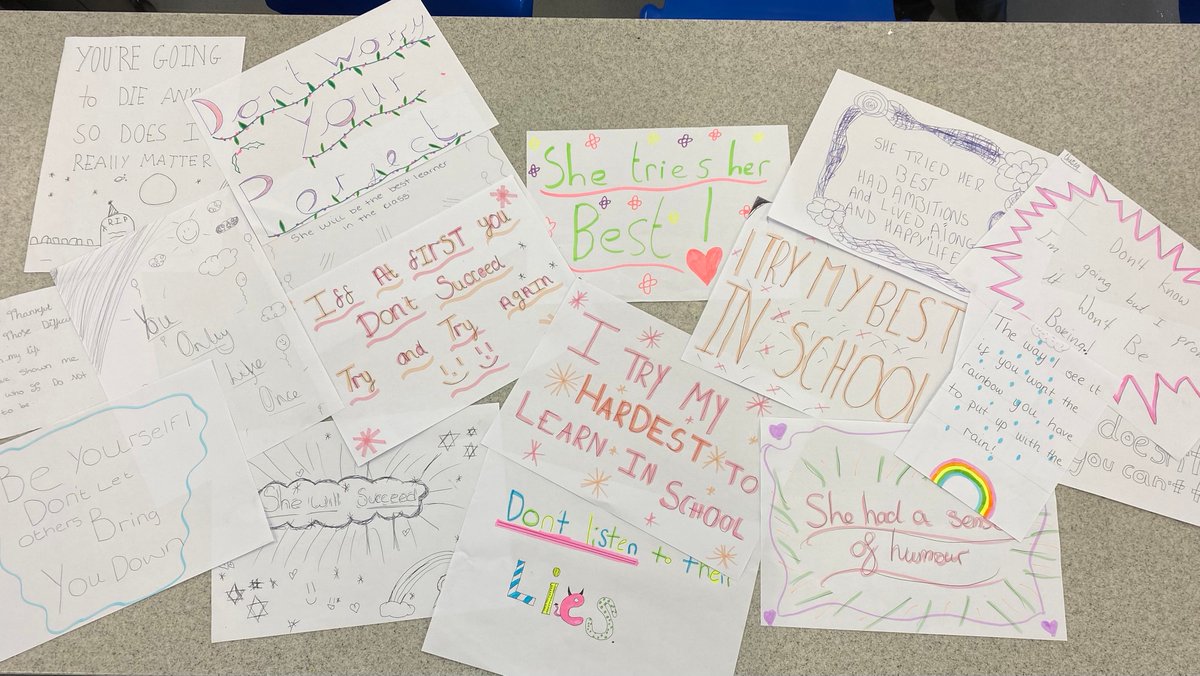 YOU'RE GOING
to DIE
SO DOES I
REALLY MATTER
R.I.P
Dont Worry
Your
Perfect
She will be the best learner
in the class
She tries her
Best!
SHE TRIED HER
BEST
HAD AMBITIONS
AND LIVED A LONG
HAPPY LIFE
I Don't Know
Im going but I
it Won't Be
Boring!
I TRY MY BEST
IN SCHOOL
Iff At fIRST you
Don't Succeed
Try and Try AGAIN
You
Only
Live
Once
Those
my life
shown me
who Do Not
to be
The way I see it
if you want the
rainbow you have
to put up with the
rain!
doesn't
you can't
I TRY MY
HARDEST TO
LEARN IN SCHOOL
Be yourself!
Dont Let
others Bring
You Down
She will Succeed
She had a
of humour
Dont listen to their
Lies